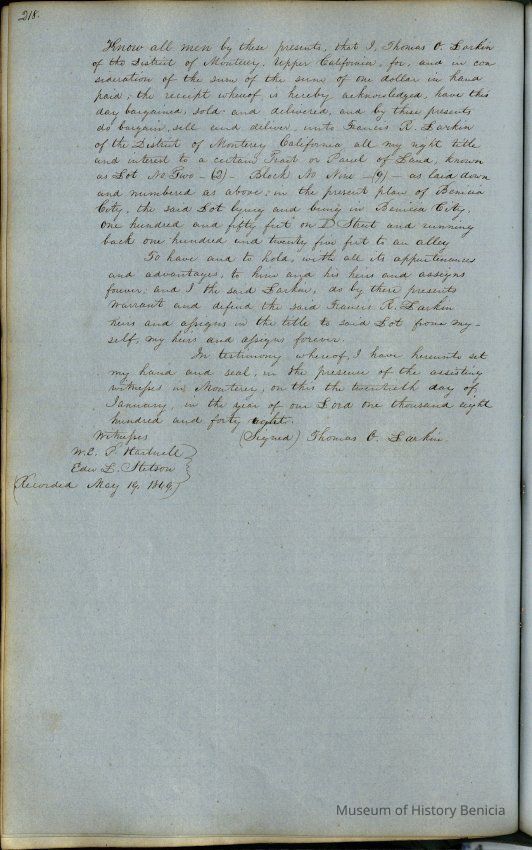 218.
Know all men by these presents, that I, Thomas O. Larkin
of the District of Monterey, Upper California, for, and in con
sideration of the sum of the sum of one dollar in hand
paid, the receipt whereof is hereby acknowledged, have this
day bargained, sold and delivered, and by these presents
do bargain, sell and deliver, unto Francis R. Larkin
of the District of Monterey California all my right title
and interest to a certain Tract or Parcel of Land, known
as Lot No Two -(2)- Block No Nine -(9)- as laid down
and numbered as above; in the present plan of Benicia
City, the said Lot lying and being in Benicia City,
one hundred and fifty feet on D Street and running
back one hundred and twenty five feet to an alley
To have and to hold, with all its appurtenances
and advantages, to him and his heirs and assigns
forever; and I the said Larkin, do by these presents
warrant and defend the said Francis R. Larkin
heirs and assigns in the title to said Lot from my-
self, my heirs and assigns forever.
In testimony whereof, I have hereunto set
my hand and seal, in the presence of the assisting
witnesses in Monterey, on this the twentieth day of
January, in the year of our Lord one thousand eight
hundred and forty eight.
Witnesses (Signed) Thomas O. Larkin
W. E. P. Hartnell
Edw L. Stetson
(Recorded May 19, 1849)
Museum of History Benicia